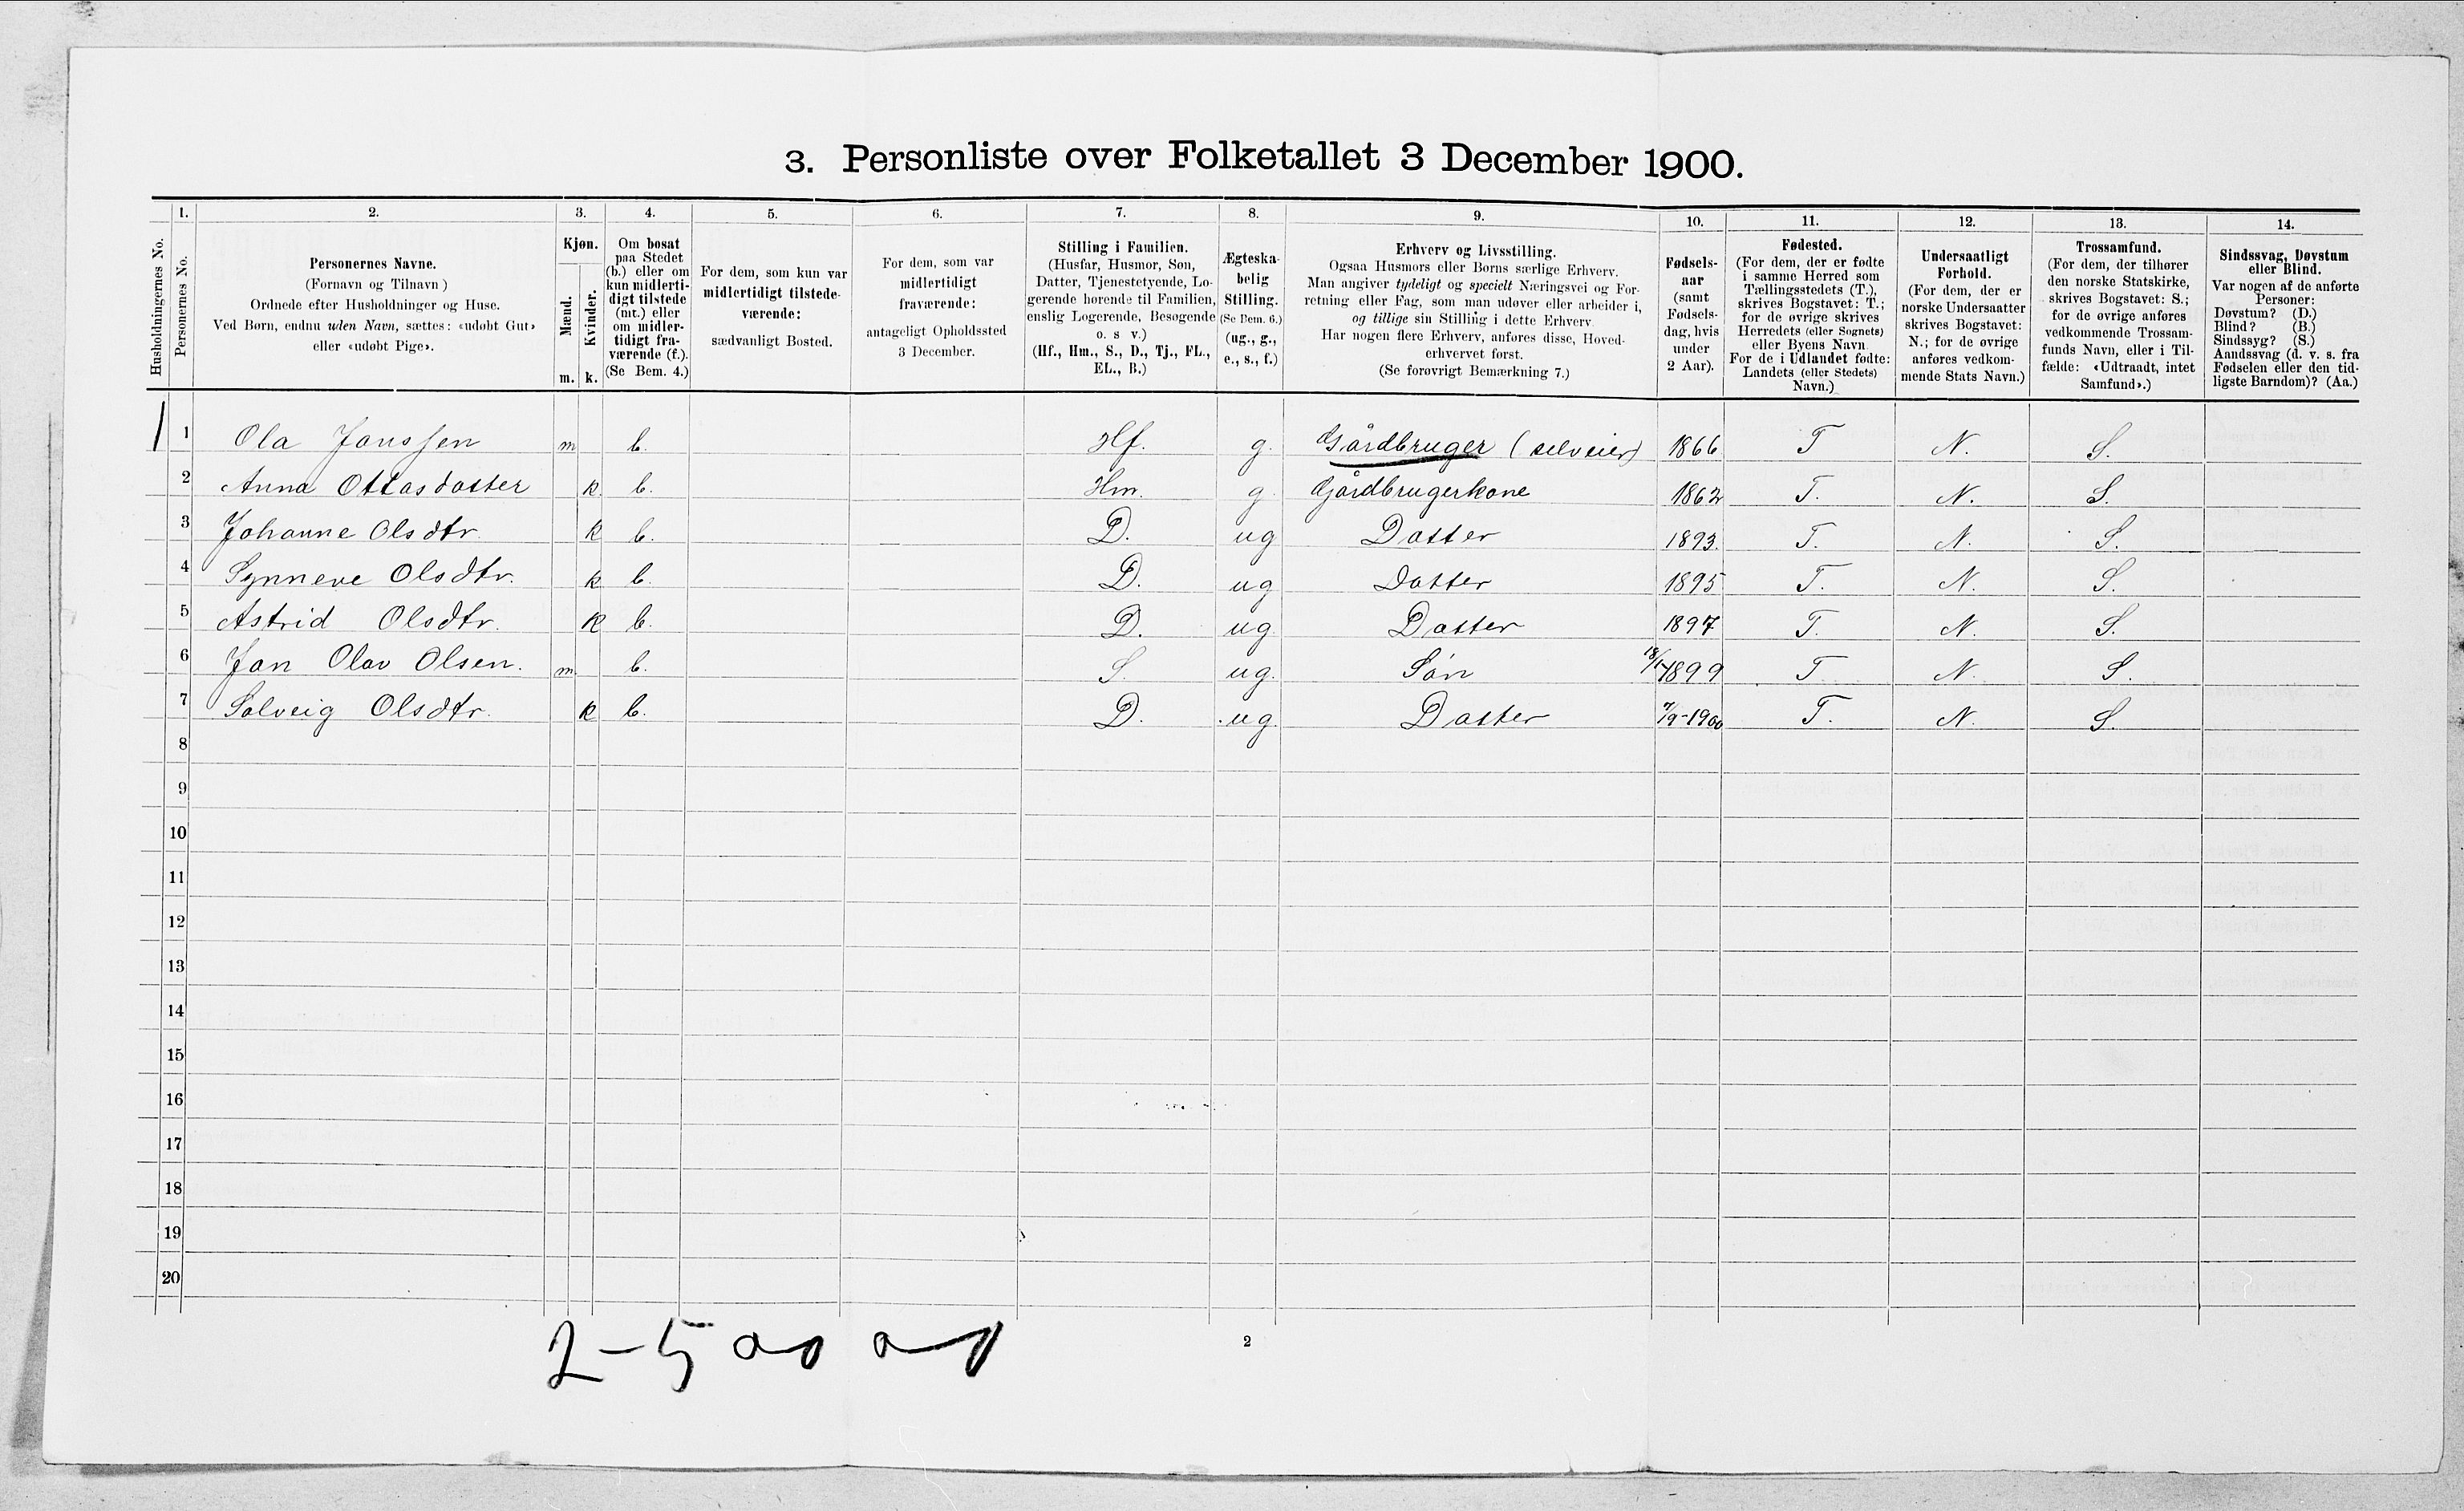 3. Personliste over Folketallet 3 December 1900.
1. 2. 3. 4. 5. 6. 7. 8. 9. 10. 11. 12. 13. 14.
Husholdningernes No.
Personernes No.
Personernes Navne.
(Fornavn og Tilnavn)
Ordnede efter Husholdninger og Huse.
Ved Børn, endnu uden Navn, sættes: «udøbt Gut»
eller «udøbt Pige».
Kjøn.
Mænd.
Kvinder.
m. k.
Om bosat
paa Stedet
(b.) eller om
kun midlerti-
digt tilstede
(mt.) eller
om midler-
tidigt fra-
værende (f.).
(Se Bem. 4.)
For dem, som kun var
midlertidigt tilstede-
værende:
sædvanligt Bosted.
For dem, som var
midlertidigt
fraværende:
antageligt Opholdssted
3 December.
Stilling i Familien.
(Husfar, Husmor, Søn,
Datter, Tjenestetyende, Lo-
gerende hørende til Familien,
enslig Logerende, Besøgende
o. s v.)
(Hf., Hm., S., D., Tj., FL.,
EL., B.)
Ægteska-
belig
Stilling.
(Se Bem. 6.)
(ug., g.,
e., s., f.)
Erhverv og Livsstilling.
Ogsaa Husmors eller Børns særlige Erhverv.
Man angiver tydeligt og specielt Næringsvei og For-
retning eller Fag, som man udøver eller arbeider i,
og tillige sin Stilling i dette Erhverv.
Har nogen flere Erhverv, anføres disse, Hoved-
erhvervet først.
(Se forøvrigt Bemærkning 7.)
Fødsels-
aar
(samt
Fødsels-
dag, hvis
under
2 Aar).
Fødested.
(For dem, der er fødte
i samme Herred som
Tællingsstedets (T.),
skrives Bogstavet: T.;
for de øvrige skrives
Herredets (eller Sognets)
eller Byens Navn
For de i Udlandet fødte:
Landets (eller Stedets)
Navn.)
Undersaatligt
Forhold.
(For dem, der er
norske Undersaatter
skrives Bogstavet:
N.; for de øvrige
anføres vedkom-
mende Stats Navn.)
Trossamfund.
(For dem, der tilhører
den norske Statskirke,
skrives Bogstavet: S.;
for de øvrige anføres
vedkommende Trossam-
funds Navn, eller i Til-
fælde: «Udtraadt, intet
Samfund».)
Sindssvag, Døvstum
eller Blind.
Var nogen af de anførte
Personer:
Døvstum? (D.)
Blind? (B.)
Sindssyg? (S.)
Aandssvag (d. v. s. fra
Fødselen eller den tid-
ligste Barndom)? (Aa.)
1 1 Ola Janssen m b. Hf. g. Gårdbruger (selveier) 1866 T N. S.
2 Anna Ottasdatter k. b. Hm. g. Gårdbrugerkone 1862 T. N. S.
3 Johanne Olsdtr. k b. D. ug Datter 1893. T. N. S.
4 Synneve Olsdtr. k b. D. ug Datter 1895 T. N. S.
5 Astrid Olsdtr. k b. D. ug. Datter 1897 T. N. S.
6 Jan Olav Olsen. m. b. S. ug. Són 1899 T N. S.
7 Solveig Olsdtr. k b. D. ug. Datter 7/9-1900 T. N. S.
8
9
10
11
12
13
14
15
16
17
18
19
20
2-5
2